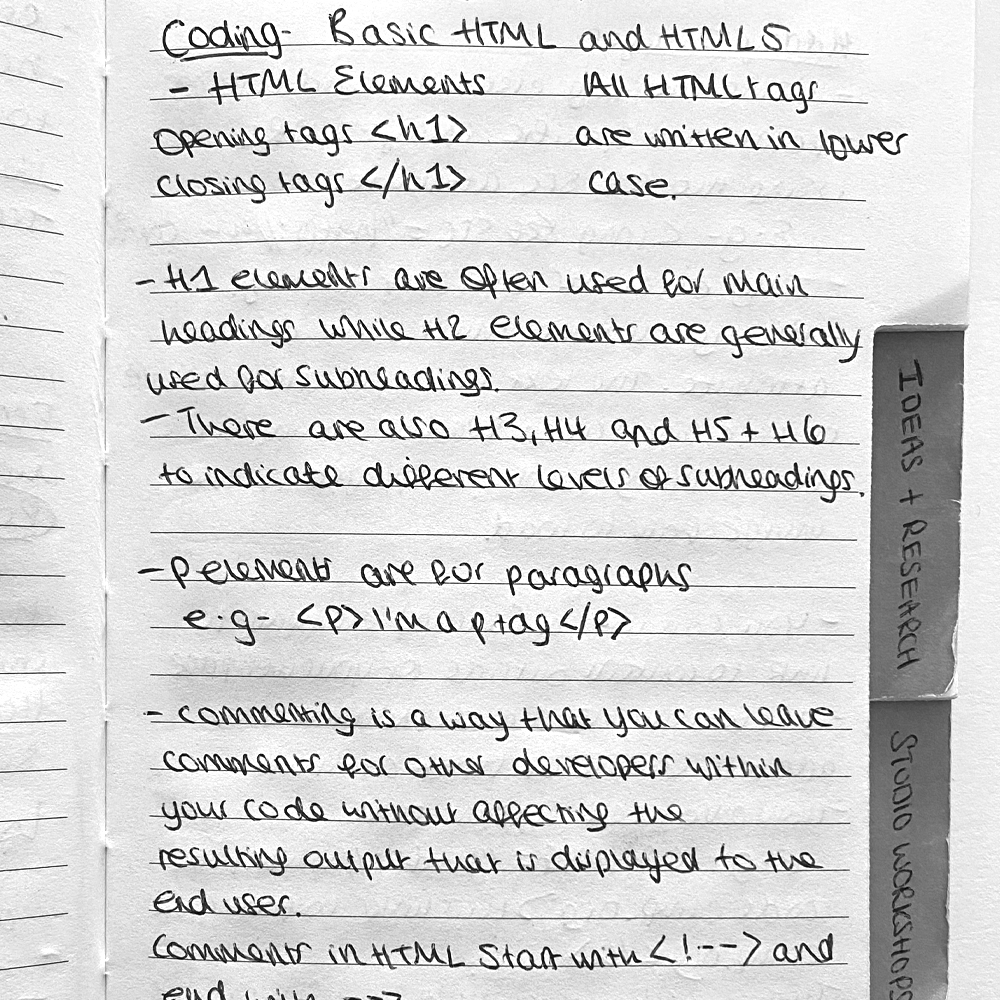 Coding- Basic HTML and HTML5
- HTML Elements
Opening tags <h1>
closing tags </h1>
All HTML tags
are written in lower
case.
- H1 elements are often used for main
headings while H2 elements are generally
used for subheadings.
- There are also H3, H4 and H5 + H6
to indicate different levels of subheadings.
- P elements are for paragraphs
e.g- <P> I'm a p tag </P>
- commenting is a way that you can leave
comments for other developers within
your code without affecting the
resulting output that is displayed to the
end user.
Comments in HTML Start with <!--> and
end with -->
IDEAS + RESEARCH
STUDIO WORKSHOPS